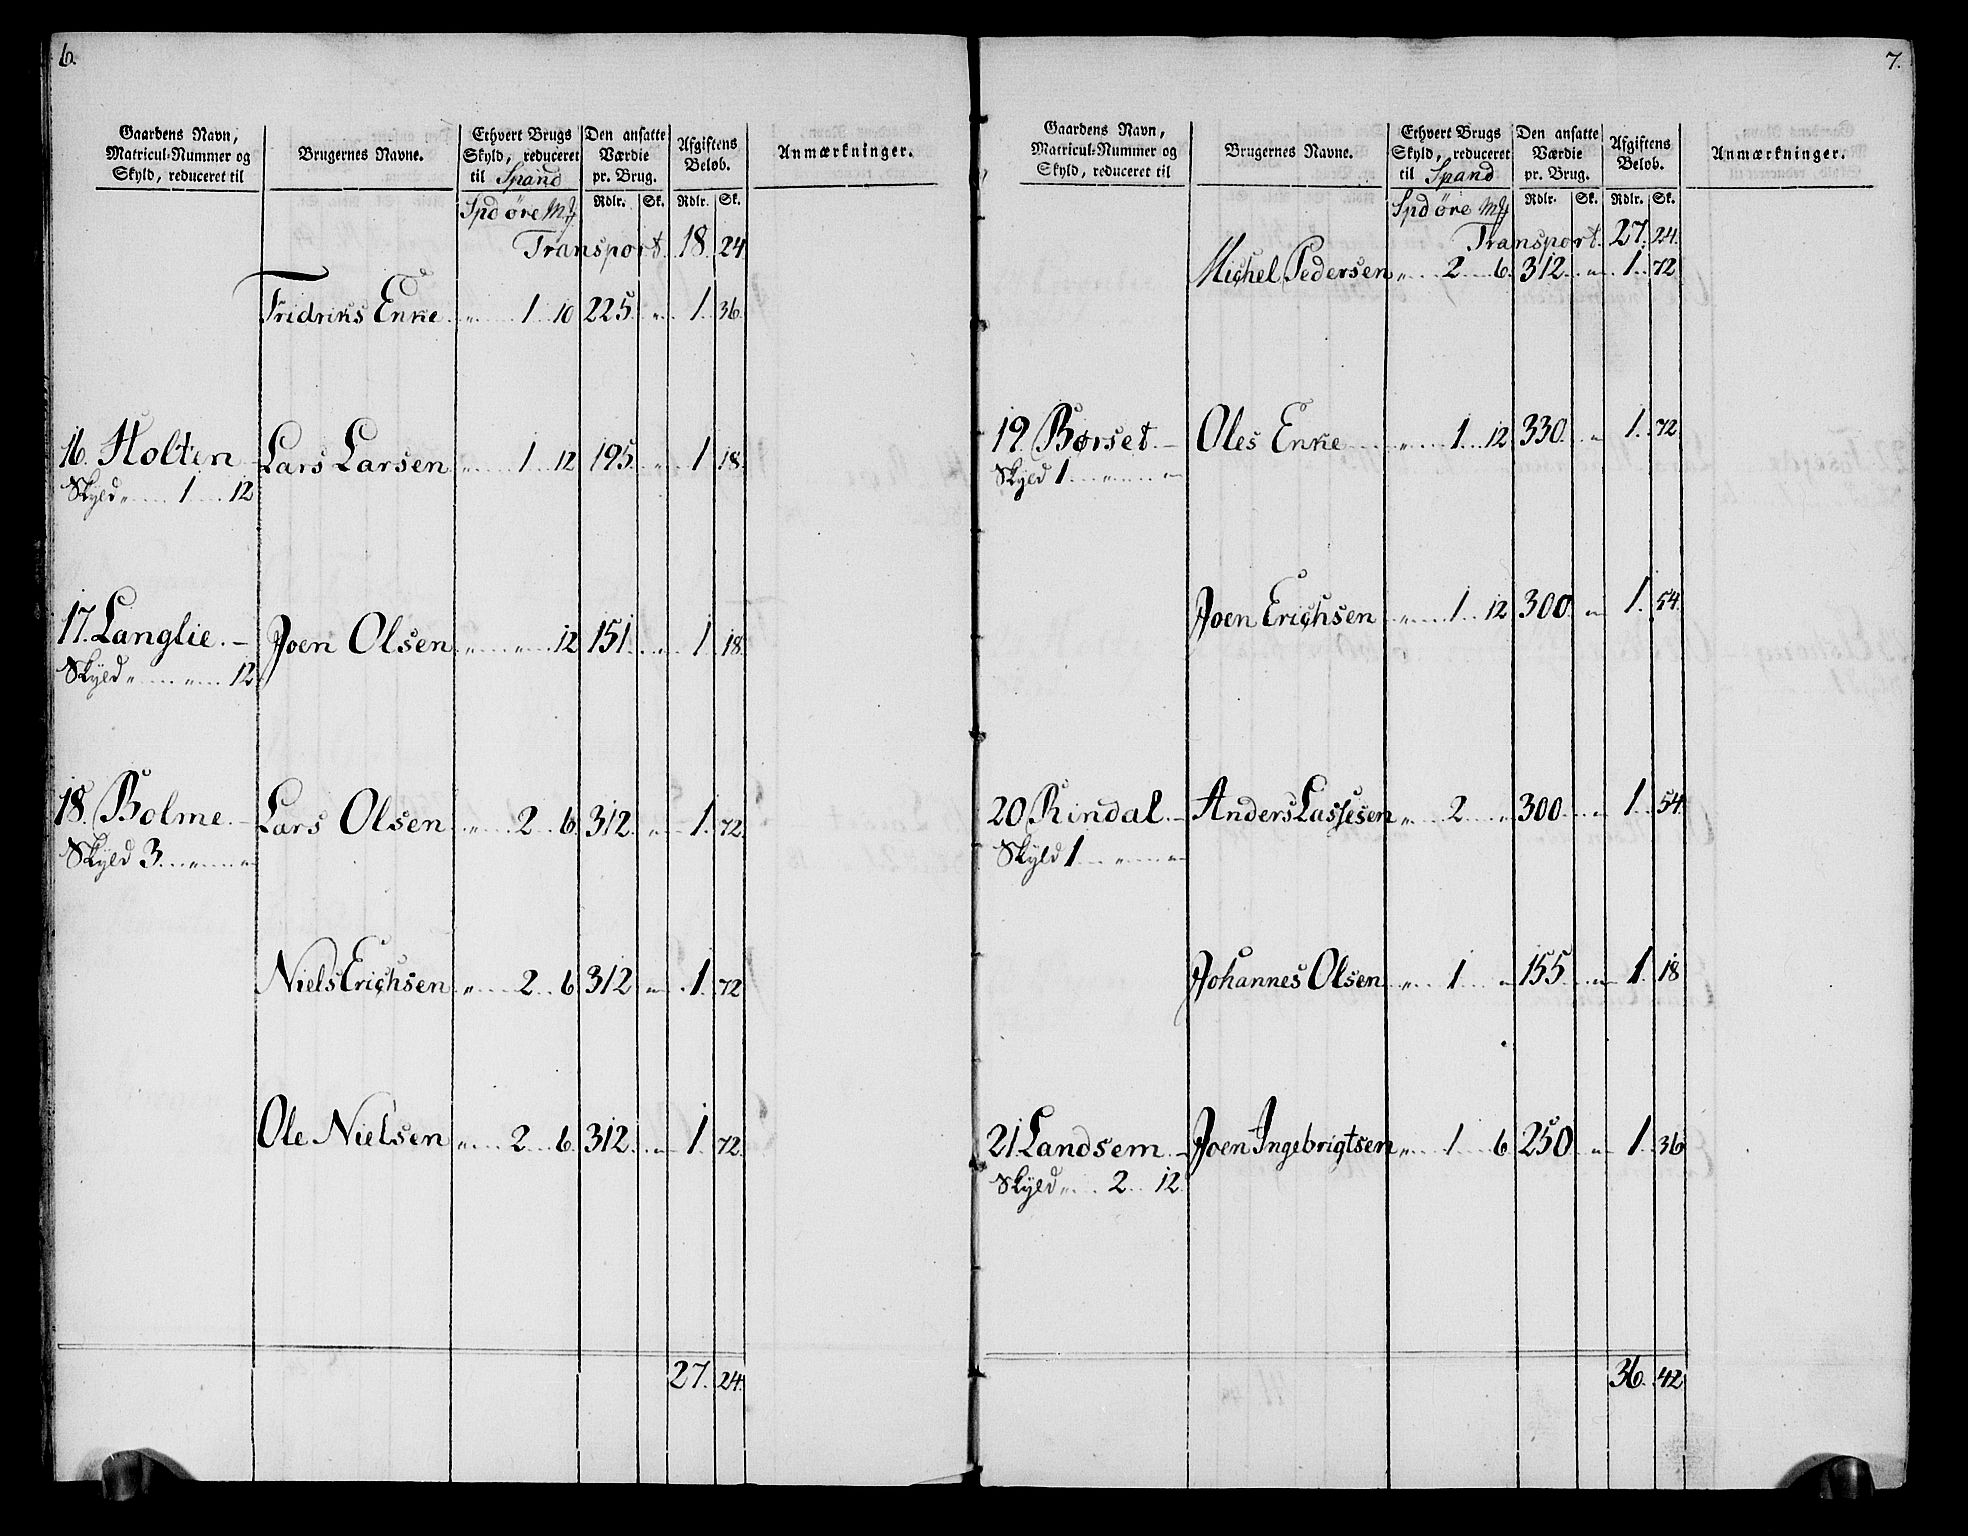 6.
Gaardens Navn, Matricul-Nummer og Skyld, reduceret til
Brugernes Navne.
Ethvert Brugs Skyld, reduceret til Spand
Den ansatte Værdie pr. Brug.
Afgiftens Beløb.
Anmærkninger.
Spd öre Mß Rdlr. Sk. Rdlr. Sk.
Transport. 18. 24
Fridriks Enke „ 1 10 225. „ 1. 36.
16. Holten Lars Larsen „ 1 12 195. „ 1 18.
Skyld „ 1 12
17. Langlie. – Joen Olsen „ „ 12 151. „ 1 18.
Skyld „ „ 12
18. Bolme. – Lars Olsen „ 2 6 312. „ 1. 72.
Skyld 3 „ „
Niels Erichsen „ 2 6 312 „ 1. 72
Ole Nielsen „ 2 6 312. „ 1 72.
27. 24.
7.
Gaardens Navn, Matricul-Nummer og Skyld, reduceret til
Brugernes Navne.
Ethvert Brugs Skyld, reduceret til Spand
Den ansatte Værdie pr. Brug.
Afgiftens Beløb.
Anmærkninger.
Spd öre Mß Rdlr. Sk. Rdlr. Sk.
Transport. 27. 24.
Michel Pedersen „ 2 6. 312. „ 1. 72
19. Børset. – Oles Enke „ 1 12 330. „ 1. 72.
Skyld 1 „ „
Joen Erichsen „ 1 12 300 „ 1. 54.
20. Rindal. – Anders Lassesen „ 2 „ 300 „ 1. 54.
Skyld 1 „ „
Johannes Olsen „ 1 „ 155 „ 1. 18
21. Landsem. – Joen Ingebrigtsen „ 1 6. 250 „ 1. 36
Skyld „ 2 12.
36. 42